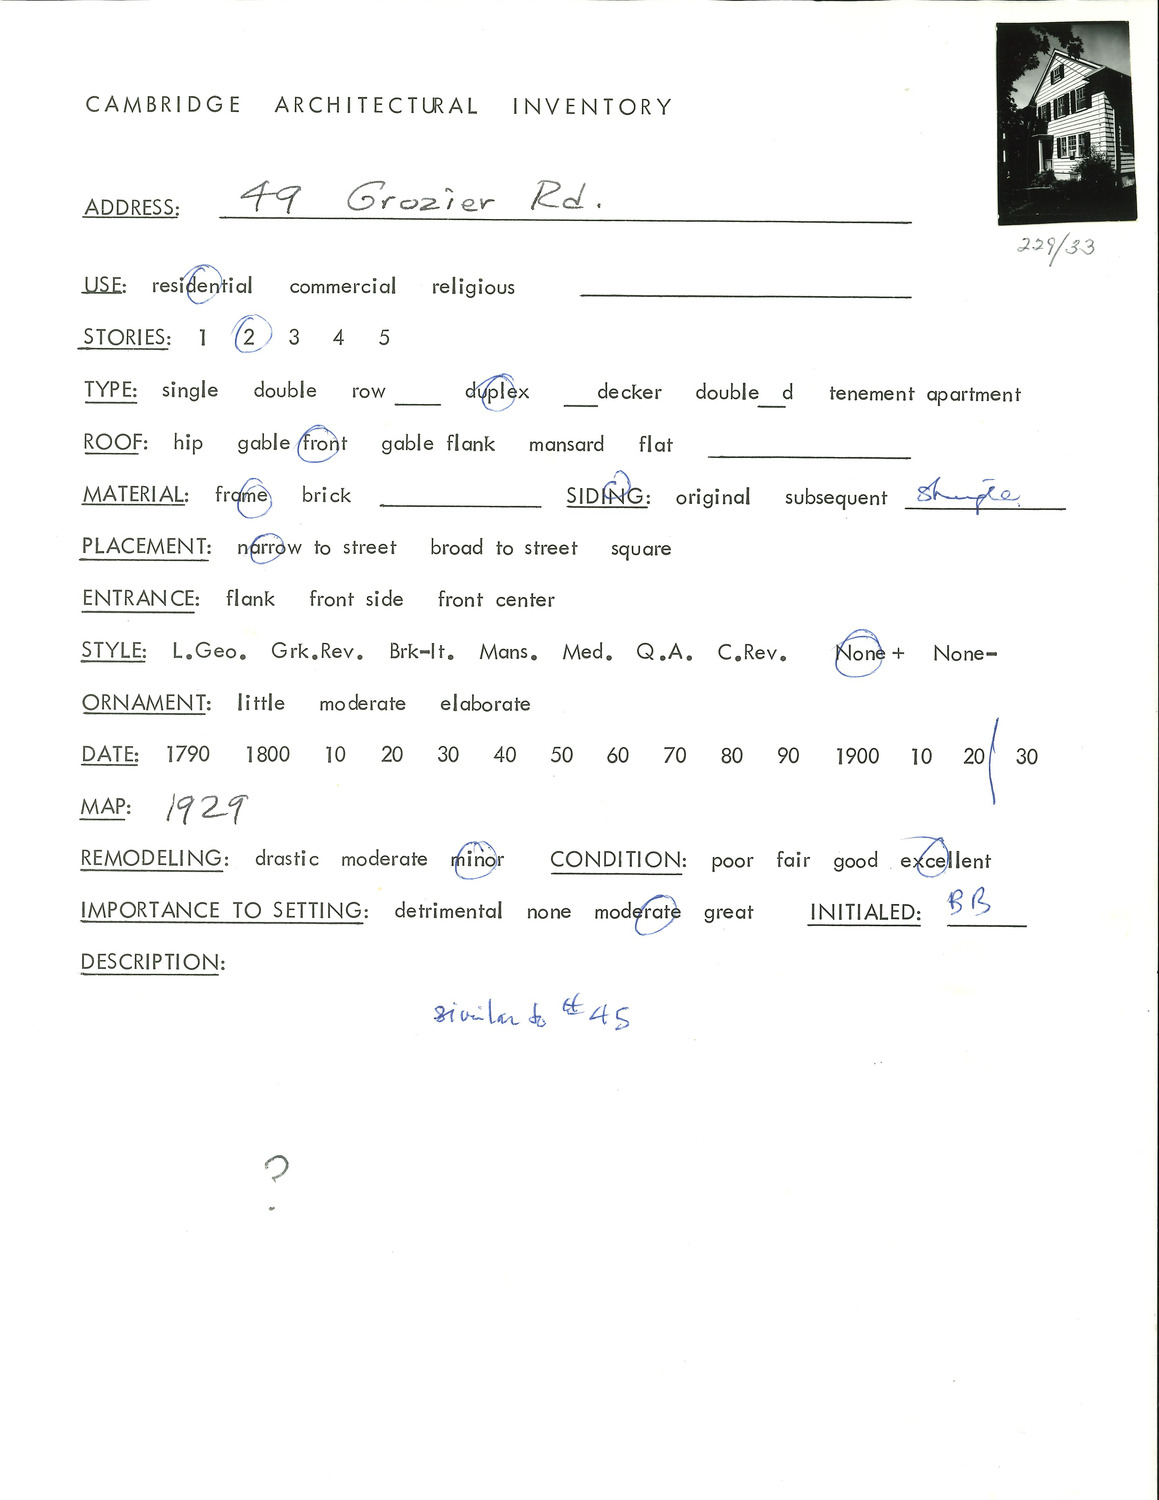 CAMBRIDGE ARCHITECTURAL INVENTORY
ADDRESS: 49 Grozier Rd.
229/33
USE: residential commercial religious
STORIES: 1 2 3 4 5
TYPE: single double row ___ duplex ___decker double__d tenement apartment
ROOF: hip gable front gable flank mansard flat
MATERIAL: frame brick SIDING: original subsequent Shingle
PLACEMENT: narrow to street broad to street square
ENTRANCE: flank front side front center
STYLE: L.Geo. Grk.Rev. Brk-It. Mans. Med. Q.A. C.Rev. None + None-
ORNAMENT: little moderate elaborate
DATE: 1790 1800 10 20 30 40 50 60 70 80 90 1900 10 20 30
MAP: 1929
REMODELING: drastic moderate minor CONDITION: poor fair good excellent
IMPORTANCE TO SETTING: detrimental none moderate great INITIALED: BB
DESCRIPTION:
similar to #45
?